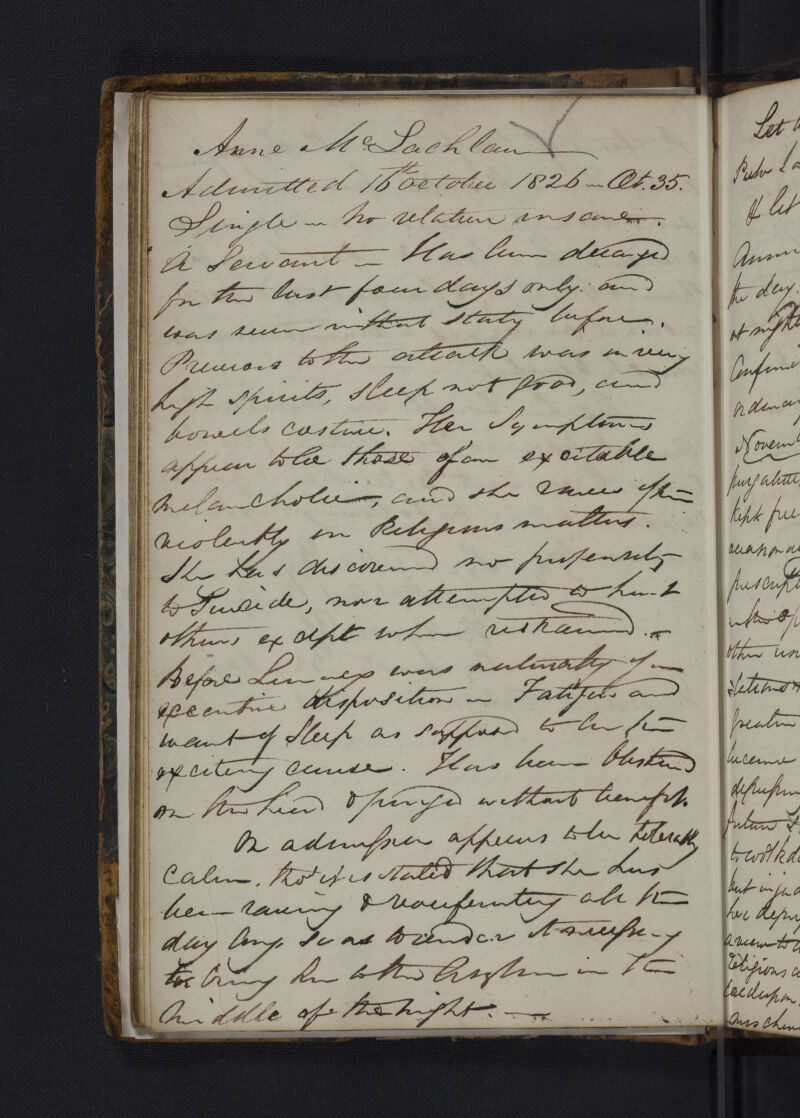 Anne McLachlan
Admitted 16th October 1826 - Æt. 35.
Single - no relation insane.
A Servant - Has been deranged
for the last four days only. and
was never in that state before.
Previous to the attack was in very
high spirits, sleep not good, and
bowels costive. Her Symptoms
appear to be those of an excitable
Melancholic, and she raves often
violently on Religious matters.
She has discovered no propensity
to Suicide, nor attempted to hurt
others except when restrained.
Before Lunacy was naturally of an
disposition - Fatigue and
want of Sleep as supposed to be the
exciting cause. Has been Blistered
on the head & purged without benefit.
On admission appears to be tolerably
calm. tho' it is stated that she has
been raving & vociferating all the
day long so as to render it necessary
to bring her to the Asylum in the
middle of the night.
Let
the day.
at night
Confine
ordinary
Novem
purgative
kept free
occasion
prescript
other
became
future
but
religious